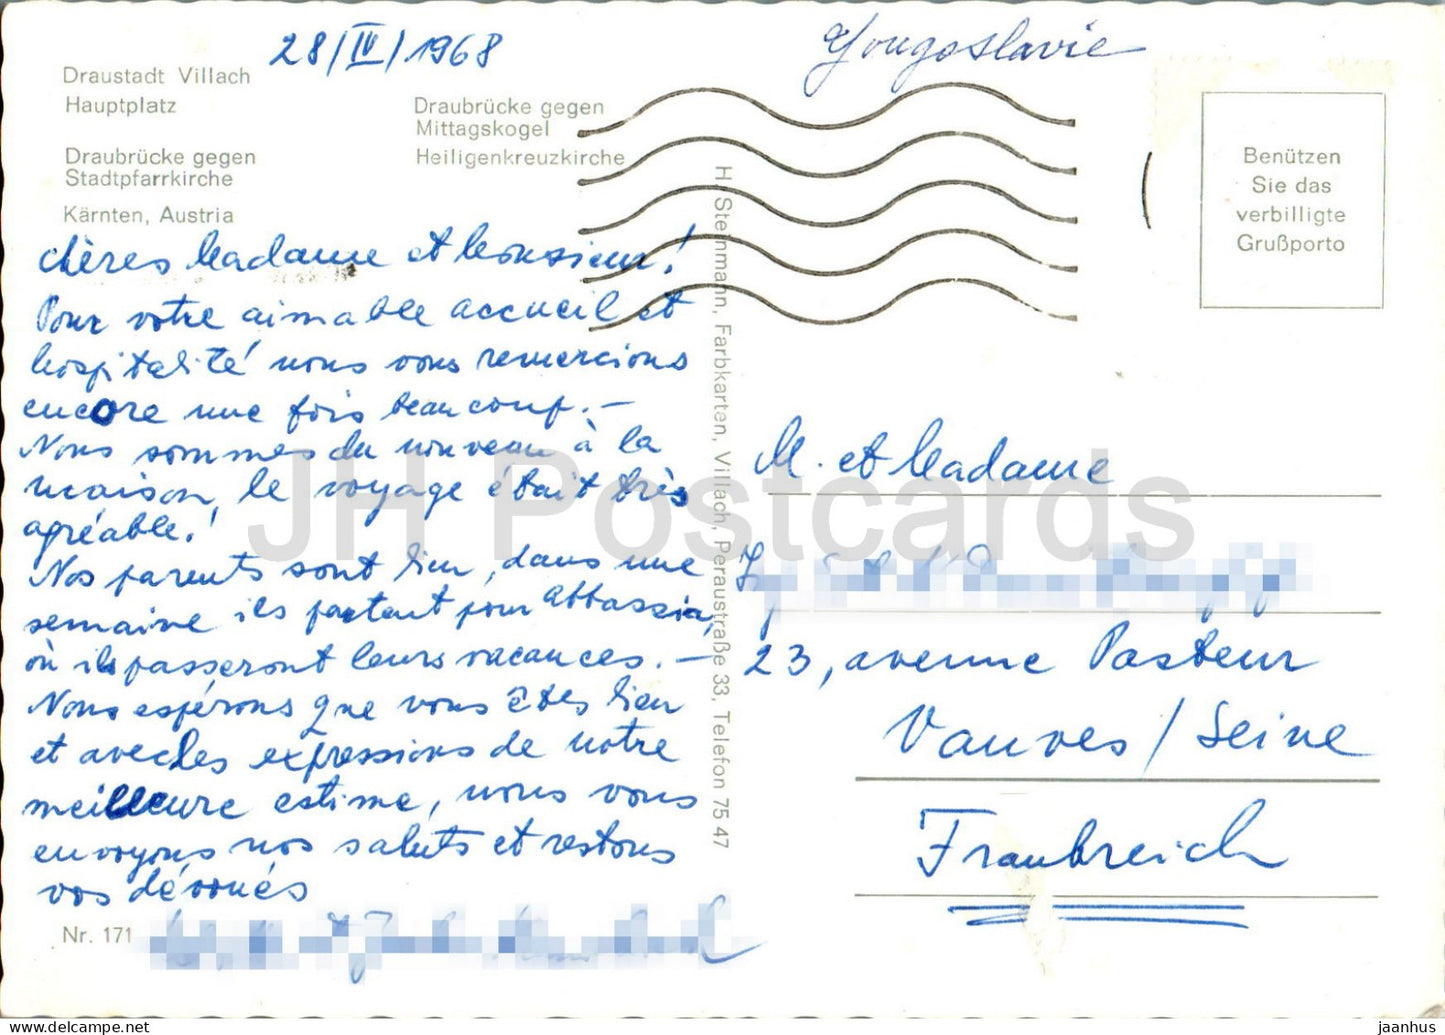 28/IV/1968
Yougoslavie
Draustadt Villach
Hauptplatz
Draubrücke gegen
Stadtpfarrkirche
Kärnten, Austria
Draubrücke gegen
Mittagskogel
Heiligenkreuzkirche
Benützen
Sie das
verbilligte
Grußporto
chères Madame et Monsieur!
Pour votre aimable accueil et
hospitalité nous vous remercions
encore une fois beaucoup. –
Nous sommes du nouveau à la
maison, le voyage était très
agréable!
Nos parents sont bien, dans une
semaine ils partent pour Abbassia,
où ils passeront leurs vacances. –
Nous espérons que vous êtes bien
et avec les expressions de notre
meilleure estime, nous vous
envoyons nos saluts et restons
vos dévoués
Nr. 171
H. Steinmann, Farbkarten, Villach, Peraustraße 33, Telefon 75 47
M. et Madame
23, avenue Pasteur
Vanves / Seine
Frankreich
JH Postcards
jaanhus @ delcampe.net